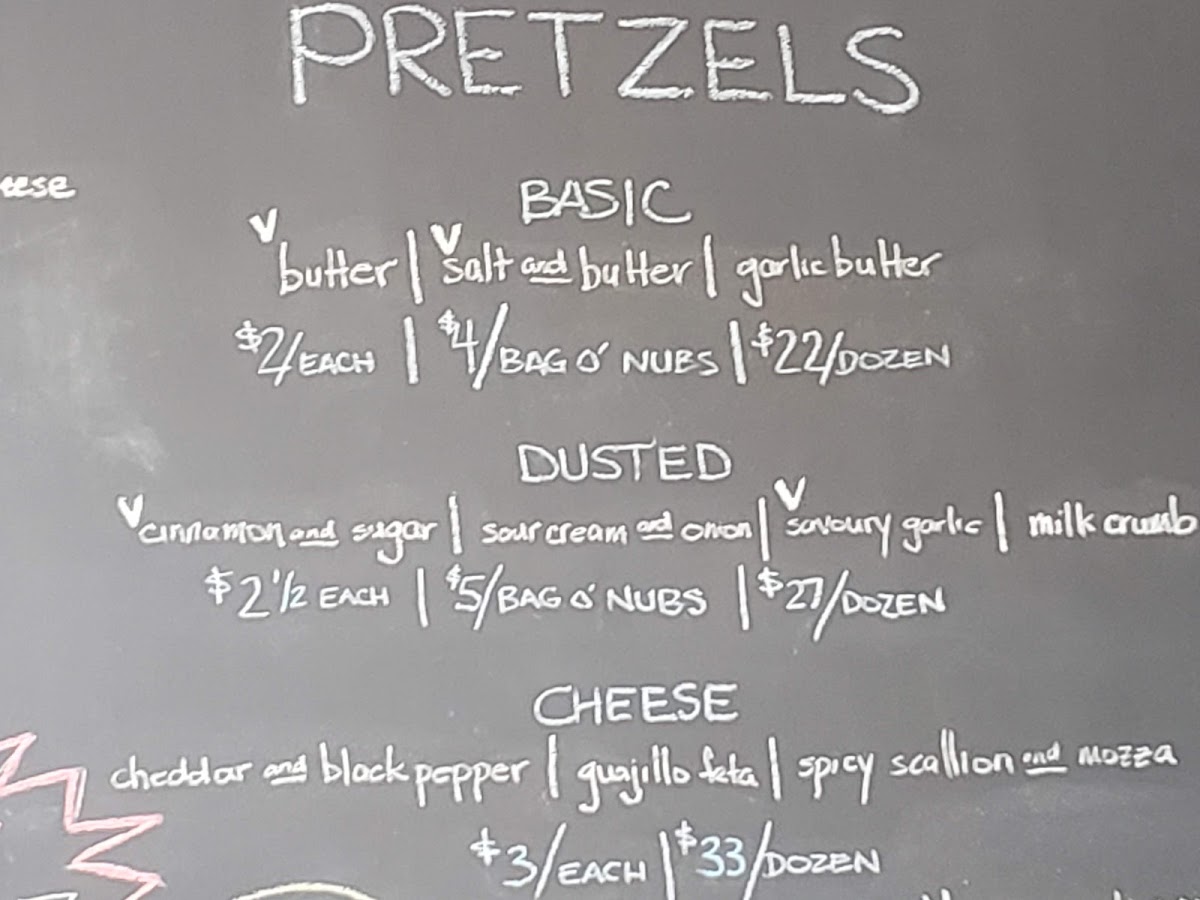 PRETZELS
eese
BASIC
V butter | V salt and butter | garlic butter
$2/EACH | $4/BAG O' NUBS | $22/DOZEN
DUSTED
V cinnamon and sugar | sour cream and onion | V savoury garlic | milk crumb
$2 1/2 EACH | $5/BAG O' NUBS | $27/DOZEN
CHEESE
cheddar and black pepper | guajillo feta | spicy scallion and mozza
$3/EACH | $33/DOZEN